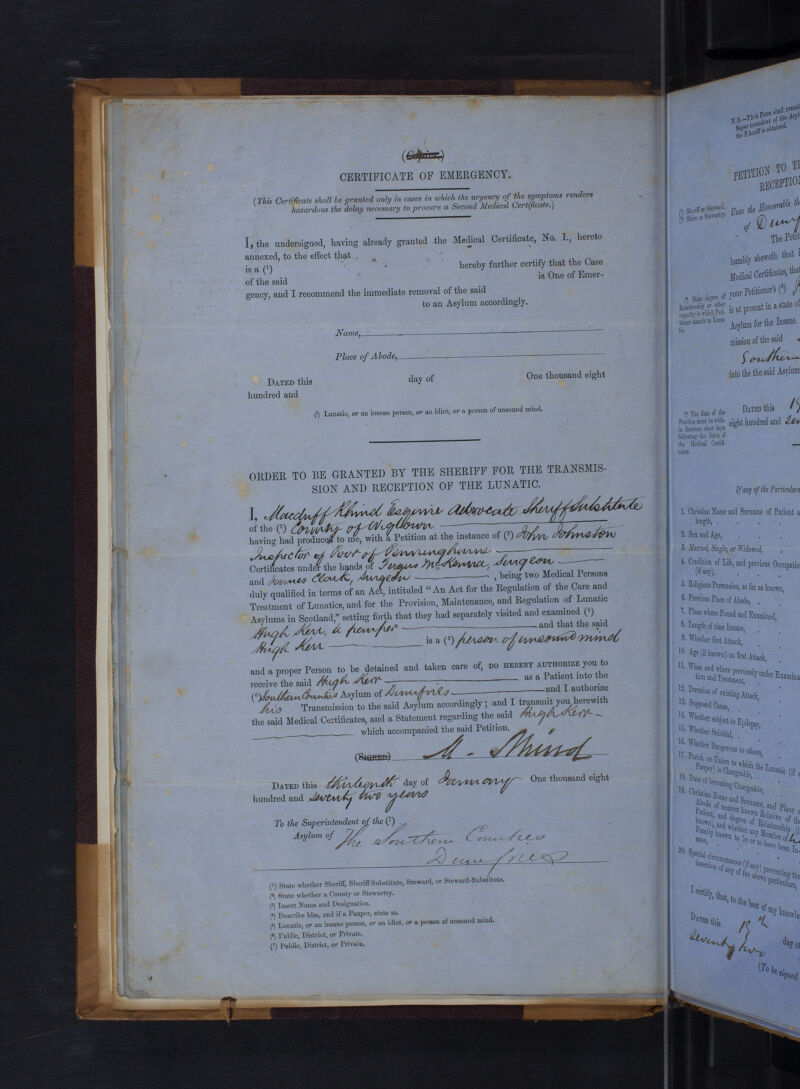 (Copies.)
CERTIFICATE OF EMERGENCY.
(This Certificate shall be granted only in cases in which the urgency of the symptoms renders
hazardous the delay necessary to procure a Second Medical Certificate.)
I, the undersigned, having already granted the Medical Certificate, No. I., hereto
annexed, to the effect that
is a (¹) hereby further certify that the Case
of the said is One of Emer-
gency, and I recommend the immediate removal of the said
to an Asylum accordingly.
Name,
Place of Abode,
DATED this day of One thousand eight
hundred and
(¹) Lunatic, or an insane person, or an idiot, or a person of unsound mind.
ORDER TO BE GRANTED BY THE SHERIFF FOR THE TRANSMIS-
SION AND RECEPTION OF THE LUNATIC.
I, Macduff Rhind Esquire Advocate Sheriff Substitute
of the (²) County of Wigtown
having had produced to me, with a Petition at the instance of (³) John Johnston
Inspector of Poor of Penninghame
Certificates under the hands of Fergus McKenna, Surgeon
and James Clark, Surgeon, being two Medical Persons
duly qualified in terms of an Act, intituled "An Act for the Regulation of the Care and
Treatment of Lunatics, and for the Provision, Maintenance, and Regulation of Lunatic
Asylums in Scotland," setting forth that they had separately visited and examined (⁴)
Hugh Kerr, a pauper and that the said
Hugh Kerr is a (⁵) person of unsound mind
and a proper Person to be detained and taken care of, DO HEREBY AUTHORIZE you to
receive the said Hugh Kerr as a Patient into the
(⁶) Southern Counties Asylum of Dumfries and I authorize
his Transmission to the said Asylum accordingly; and I transmit you herewith
the said Medical Certificates, and a Statement regarding the said Hugh Kerr
which accompanied the said Petition.
(SIGNED) M. Rhind
DATED this thirteenth day of January One thousand eight
hundred and seventy two years
To the Superintendent of the (⁷)
Asylum of The Southern Counties
Dumfries
(¹) State whether Sheriff, Sheriff-Substitute, Steward, or Steward-Substitute.
(²) State whether a County or Stewartry.
(³) Insert Name and Designation.
(⁴) Describe him, and if a Pauper, state so.
(⁵) Lunatic, or an insane person, or an idiot, or a person of unsound mind.
(⁶) Public, District, or Private.
(⁷) Public, District, or Private.
N.B.—This Form shall
Superintendent of the
the Sheriff is obtained.
PETITION TO
(¹) Sheriff or Steward.
(²) Shire or Stewartry.
Unto the Honourable
of
The
humbly sheweth that
Medical Certificates,
(³) State degree of
Relationship or other
capacity in which Peti-
tioner stands to Luna-
tic.
your Petitioner's (³)
is at present in a state of
Asylum for the Insane.
mission of the said
into the the said Asylum
(⁴) The date of the
Petition must be with-
in fourteen clear days
following the dates of
the Medical Certifi-
cates.
DATED this
eight hundred and
If any of the
1. Christian Name and Surname of Patient
length,
2. Sex and Age,
3. Married, Single, or Widowed,
4. Condition of Life, and previous
(if any),
5. Religious Persuasion, so far as known,
6. Previous Place of Abode,
7. Place where Found and Examined,
8. Length of time Insane,
9. Whether first Attack,
10. Age (if known) on first Attack,
11. When and where previously under
tion and Treatment,
12. Duration of existing Attack,
13. Supposed Cause,
14. Whether subject to Epilepsy,
15. Whether Suicidal,
16. Whether Dangerous to others,
17. Parish or Union to which the Lunatic (if
Pauper) is Chargeable,
18. Date of becoming Chargeable,
19. Christian Name and Surname, and Place
Abode of nearest known Relative of
Patient, and degree of Relationship
known), and whether any Member of
Family known to be or to have been
sane,
20. Special circumstances (if any) preventing the
insertion of any of the above particulars,
I certify, that, to the best of my
DATED this day
seventy two
(To be signed